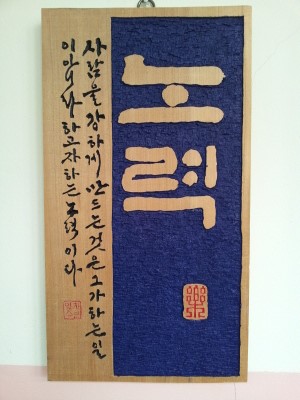 노력
사람을 강하게 만드는 것은 그가 하는 일
이 아니라 하고자 하는 노력이다
樂